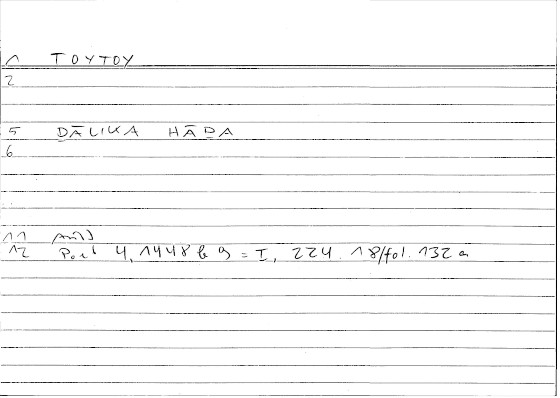 1 TOYTOY
2
5 DĀLIKA HĀḎA
6
11
12 4, 1448 b 9 = I, 224. 18/fol. 132 a